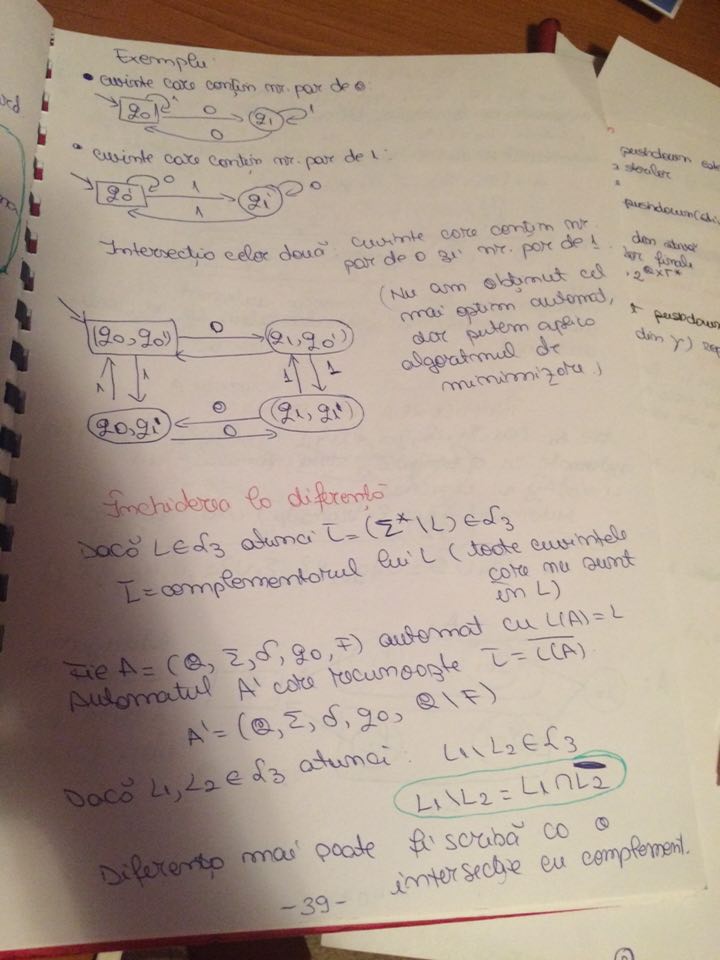 Exemplu:
• cuvinte care conțin nr. par de 0:
q0 1 0 q1 1
0
• cuvinte care conțin nr. par de 1:
q0' 0 1 q1' 0
1
Intersecția celor două: cuvinte care conțin nr.
par de 0 și nr. par de 1.
(Nu am obținut cel
mai optim automat,
dar putem aplica
algoritmul de
minimizare)
(q0, q0') 0 (q1, q0')
1 1 1 1
q0, q1' 0 (q1, q1')
0
Închiderea la diferență
Dacă L ∈ L3 atunci L̅ = (Σ* \ L) ∈ L3
L̅ = complementarul lui L (toate cuvintele
care nu sunt
în L)
Fie A = (Q, Σ, δ, q0, F) automat cu L(A) = L
Automatul A' care recunoaște L̅ = L̅(̅A̅)̅
A' = (Q, Σ, δ, q0, Q \ F)
Dacă L1, L2 ∈ L3 atunci: L1 \ L2 ∈ L3
L1 \ L2 = L1 ∩ L̅2̅
Diferența mai poate fi scrisă ca o
intersecție cu complement.
- 39 -
pushdown
pushdown
finale
2^Q×Γ*
pushdown
din γ)